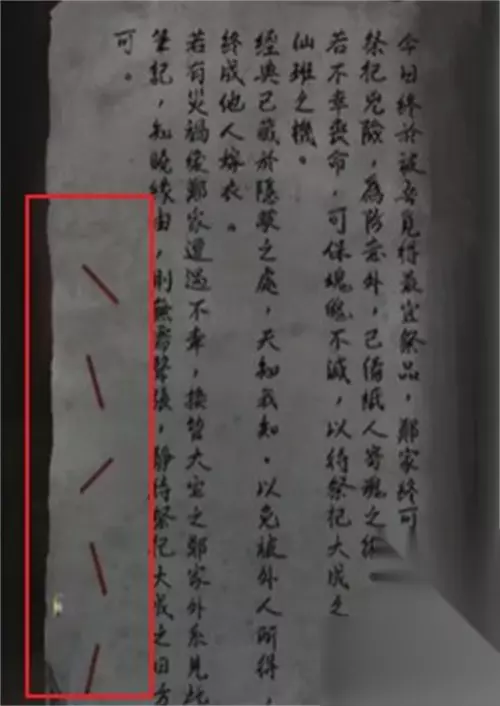 今日終於被吾覓得最宜祭品，鄭家終可
祭祀兇險，為防意外，已備紙人寄魂之
若不幸喪命，可保魂魄不滅，以待祭祀大成之
仙班之機。
經典已藏於隱蔽之處，天知我知。以免被外人所得，
終成他人嫁衣。
若有災禍使鄭家遭遇不幸，換替大宝之鄭家外系見此
筆記，知曉緣由，則無需聲張，靜待祭祀大成之日方
可。